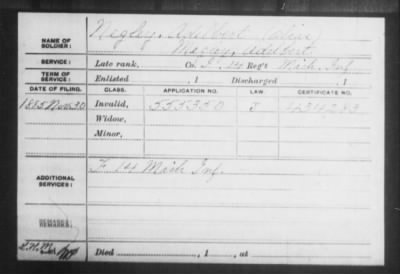 NAME OF SOLDIER: Negley, Adelbert (alias)
Adelbert
SERVICE: Late rank, Co. F, 14 Reg't Mich. Inf.
TERM OF SERVICE: Enlisted , 1 Discharged , 1
DATE OF FILING. CLASS. APPLICATION NO. LAW. CERTIFICATE NO.
1885 Nov. 30 Invalid,
Widow,
Minor,
ADDITIONAL SERVICES: F 14 Mich Inf.
REMARKS:
Died , 1 , at